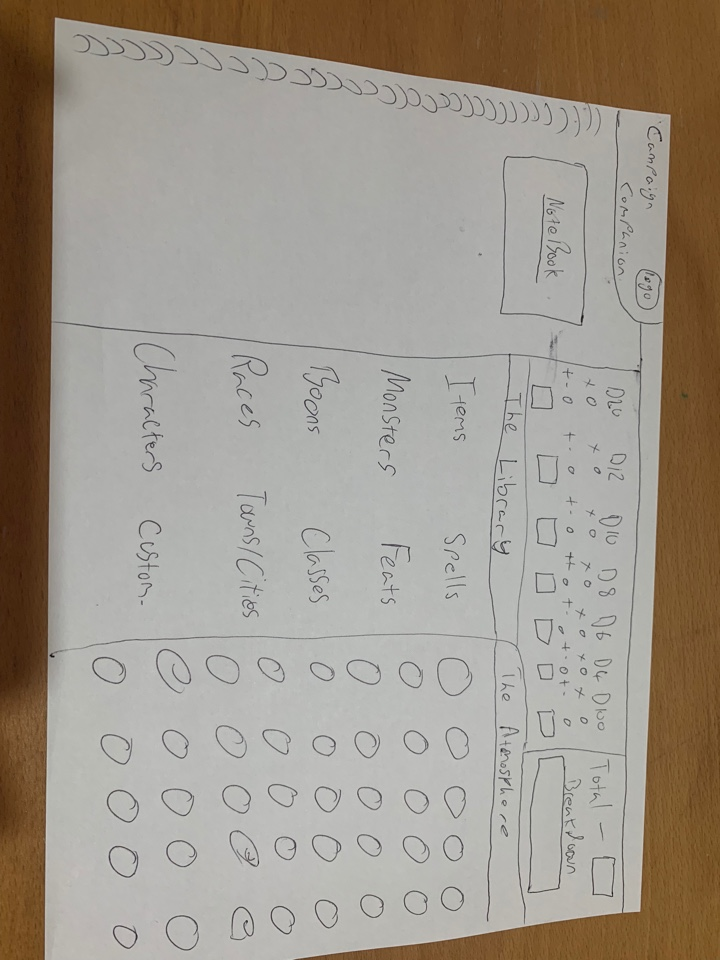 Campaign
Companion
logo
D20 D12 D10 D8 D6 D4 D100
x0 x0 x0 x0 x0 x0 x0
+-0 +-0 +-0 +-0 +-0 +-0 +-0
Total -
Breakdown
NoteBook
The Library
Items Spells
Monsters Feats
Boons Classes
Races Towns/Cities
Characters Custom-
The Atmosphere